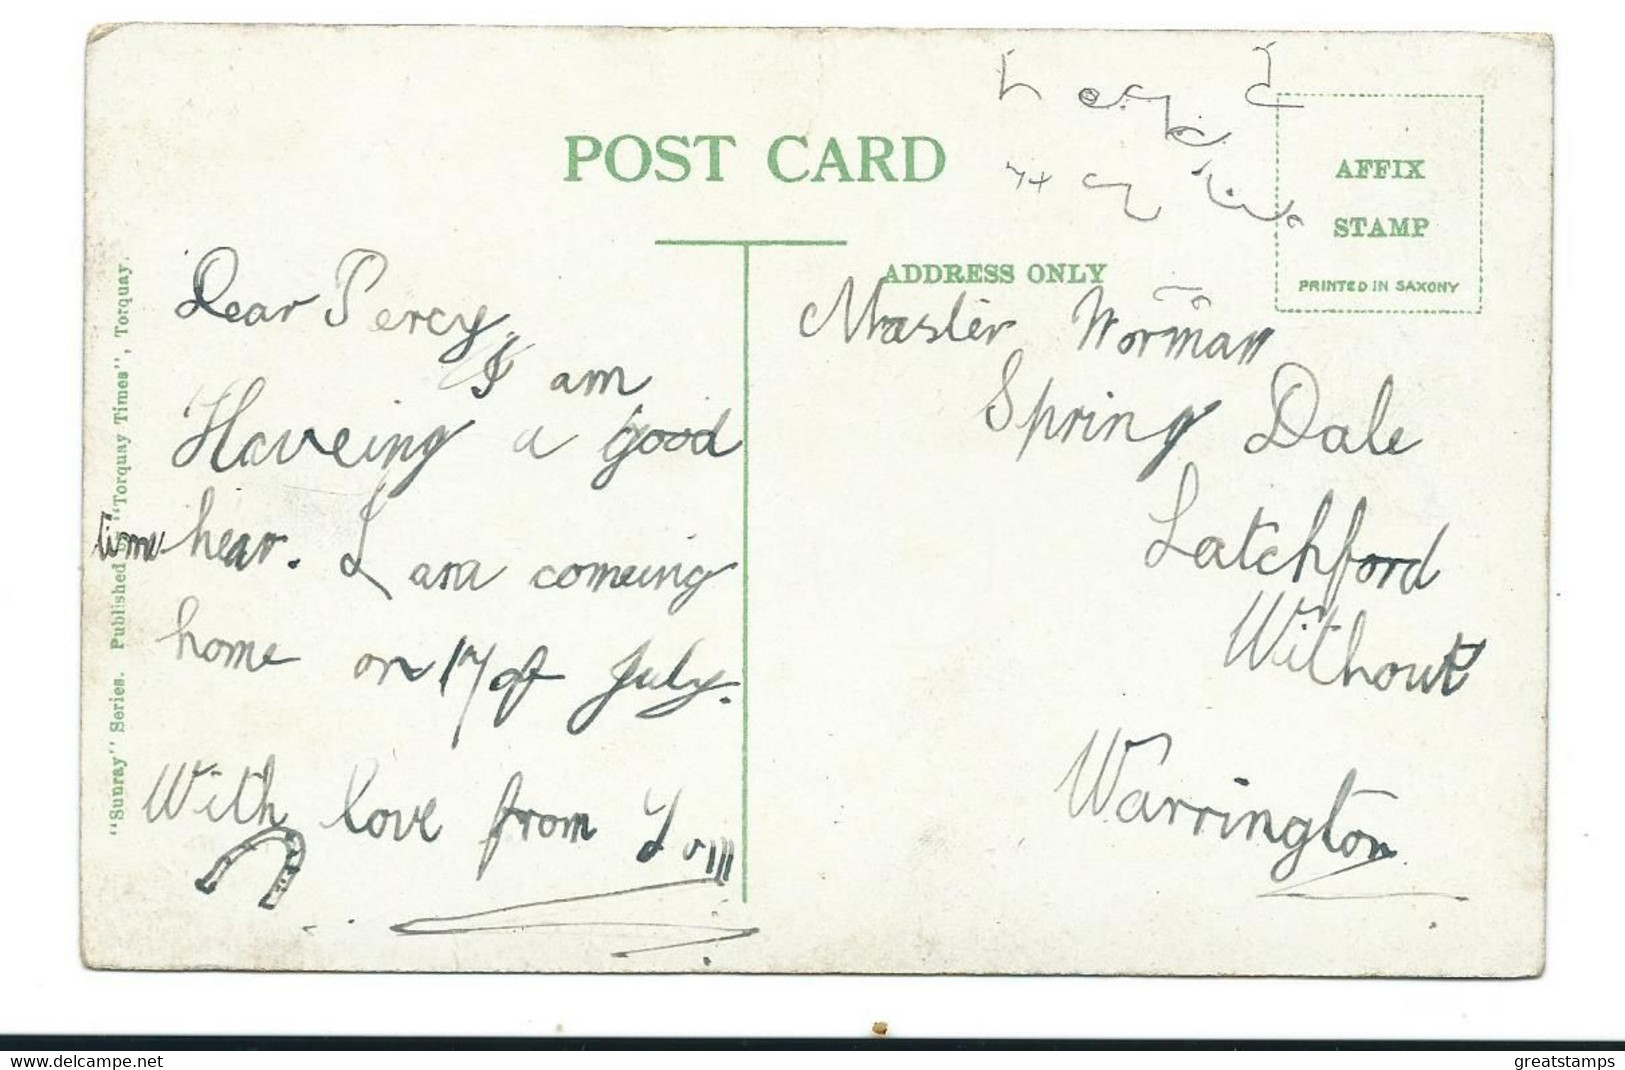 POST CARD
AFFIX
STAMP
PRINTED IN SAXONY
ADDRESS ONLY
Dear Percy,
I am
Haveing a good
time hear. I am comeing
home on 17 of July.
With love from Tom
Master Norman
Spring Dale
Latchford
Without
Warrington
"Sunray" Series. Published by "Torquay Times", Torquay.
delcampe.net
greatstamps